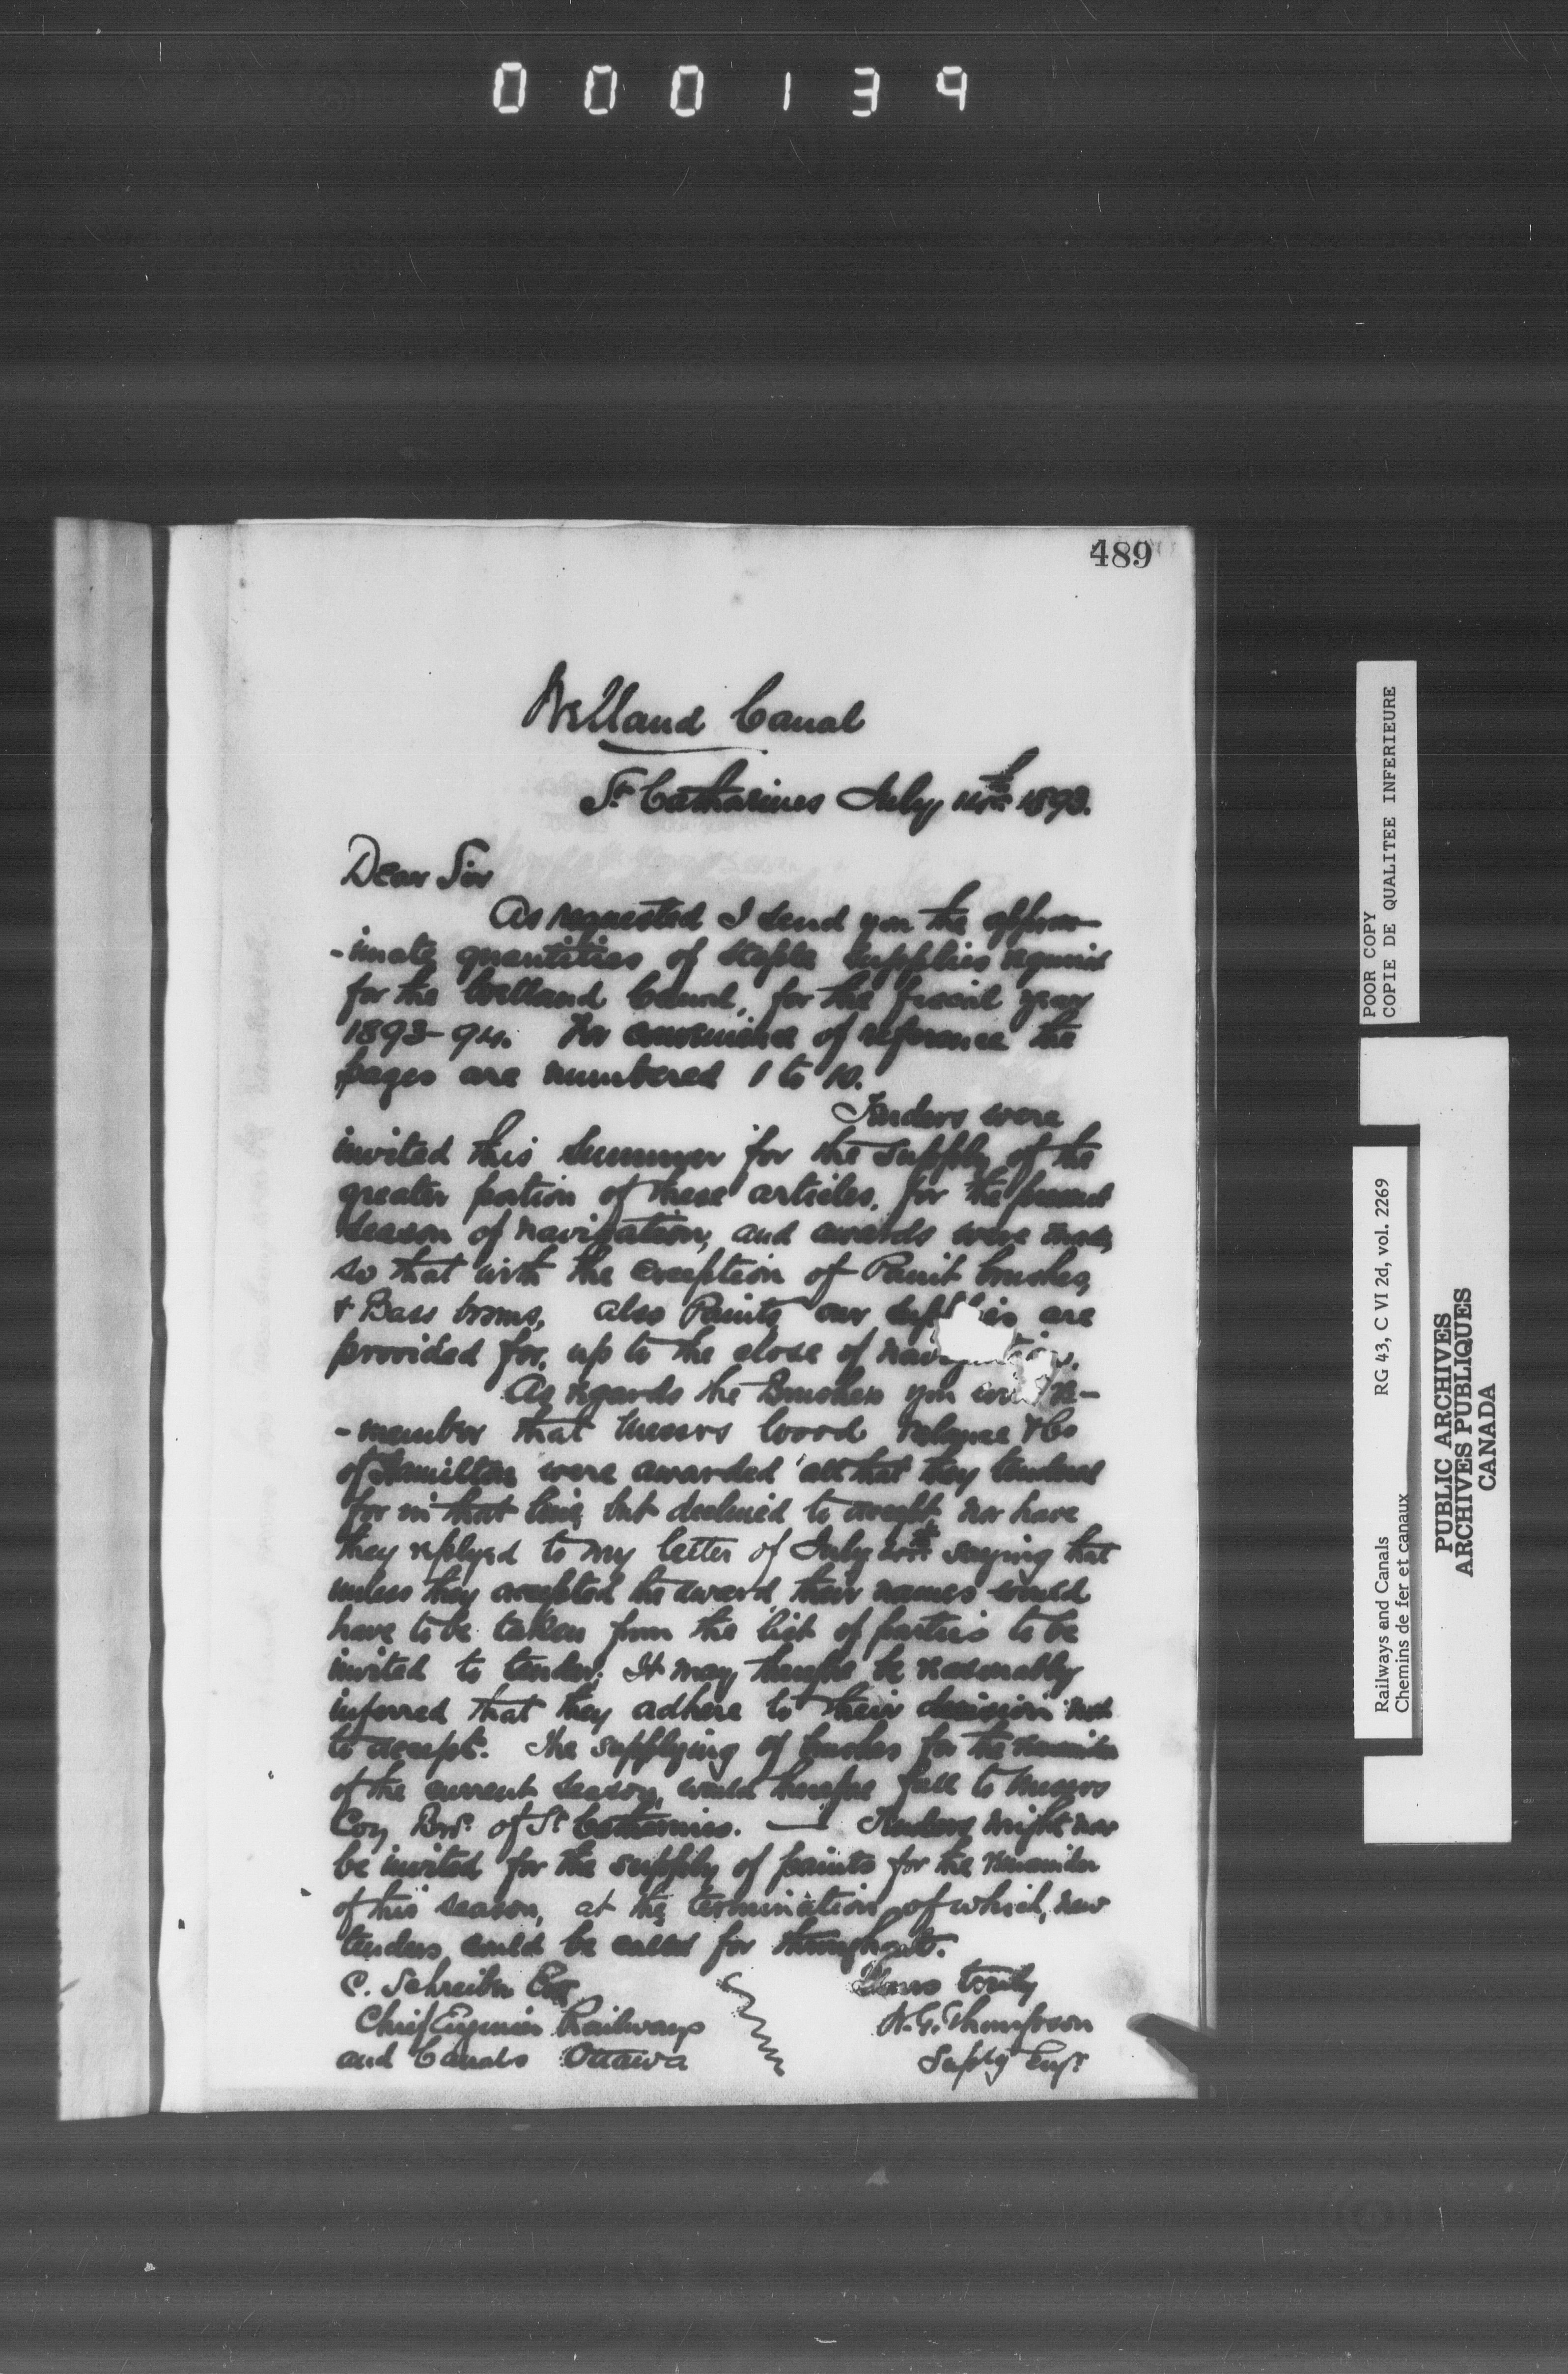 000139
489
Welland Canal
St Catharines July 14th 1893.
Dear Sir
As requested I send you the approx-
-imate quantities of staple supplies required
for the Welland Canal, for the fiscal year
1893-94. For convenience of reference the
pages are numbered 1 to 10.
Tenders were
invited this summer for the supply of the
greater portion of these articles, for the present
season of navigation, and awards were made,
so that with the exception of Paint brushes,
& Bass brooms, also Paints our supplies are
provided for, up to the close of navigation.
As regards the Brushes you will re-
-member that Messrs Wood & Co
of Hamilton were awarded all that they tendered
for in that line, but declined to accept, nor have
they replyed to my letter of July saying that
unless they accepted the award, their names would
have to be taken from the list of parties to be
invited to tender. It may therefore be reasonably
inferred that they adhere to their decision not
to accept. The supplying of brushes for the remainder
of the current season, would therefore fall to Messrs
Coy Bros. of St Catharines. — Tenders might now
be invited for the supply of paints for the remainder
of this season, at the termination of which, new
tenders could be called for throughout.
C. Schreiber Esq
Chief Engineer Railways
and Canals Ottawa
Yours truly
W.G. Thompson
Suptg Engr.
POOR COPY
COPIE DE QUALITEE INFERIEURE
Railways and Canals RG 43, C VI 2d, vol. 2269
Chemins de fer et canaux
PUBLIC ARCHIVES
ARCHIVES PUBLIQUES
CANADA